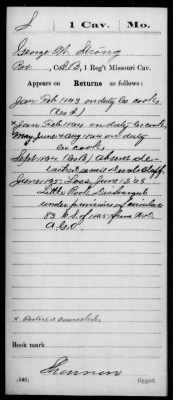 S 1 Cav. Mo.
George W. Strong
Co. A&B, 1 Reg't Missouri Cav.
Appears on
Returns as follows:
Jan Feb 1863 on duty Co cook
Jan Feb 1864 on duty Co cook
May June & Aug 1864 on duty
Co cook
Sept 1864 absent
June 1865 Loss June 13, 65
Little Rock Discharged
under provisions of circular
83 C.S. of 1865 from
A.G.O
Book mark
(546) Copyist.